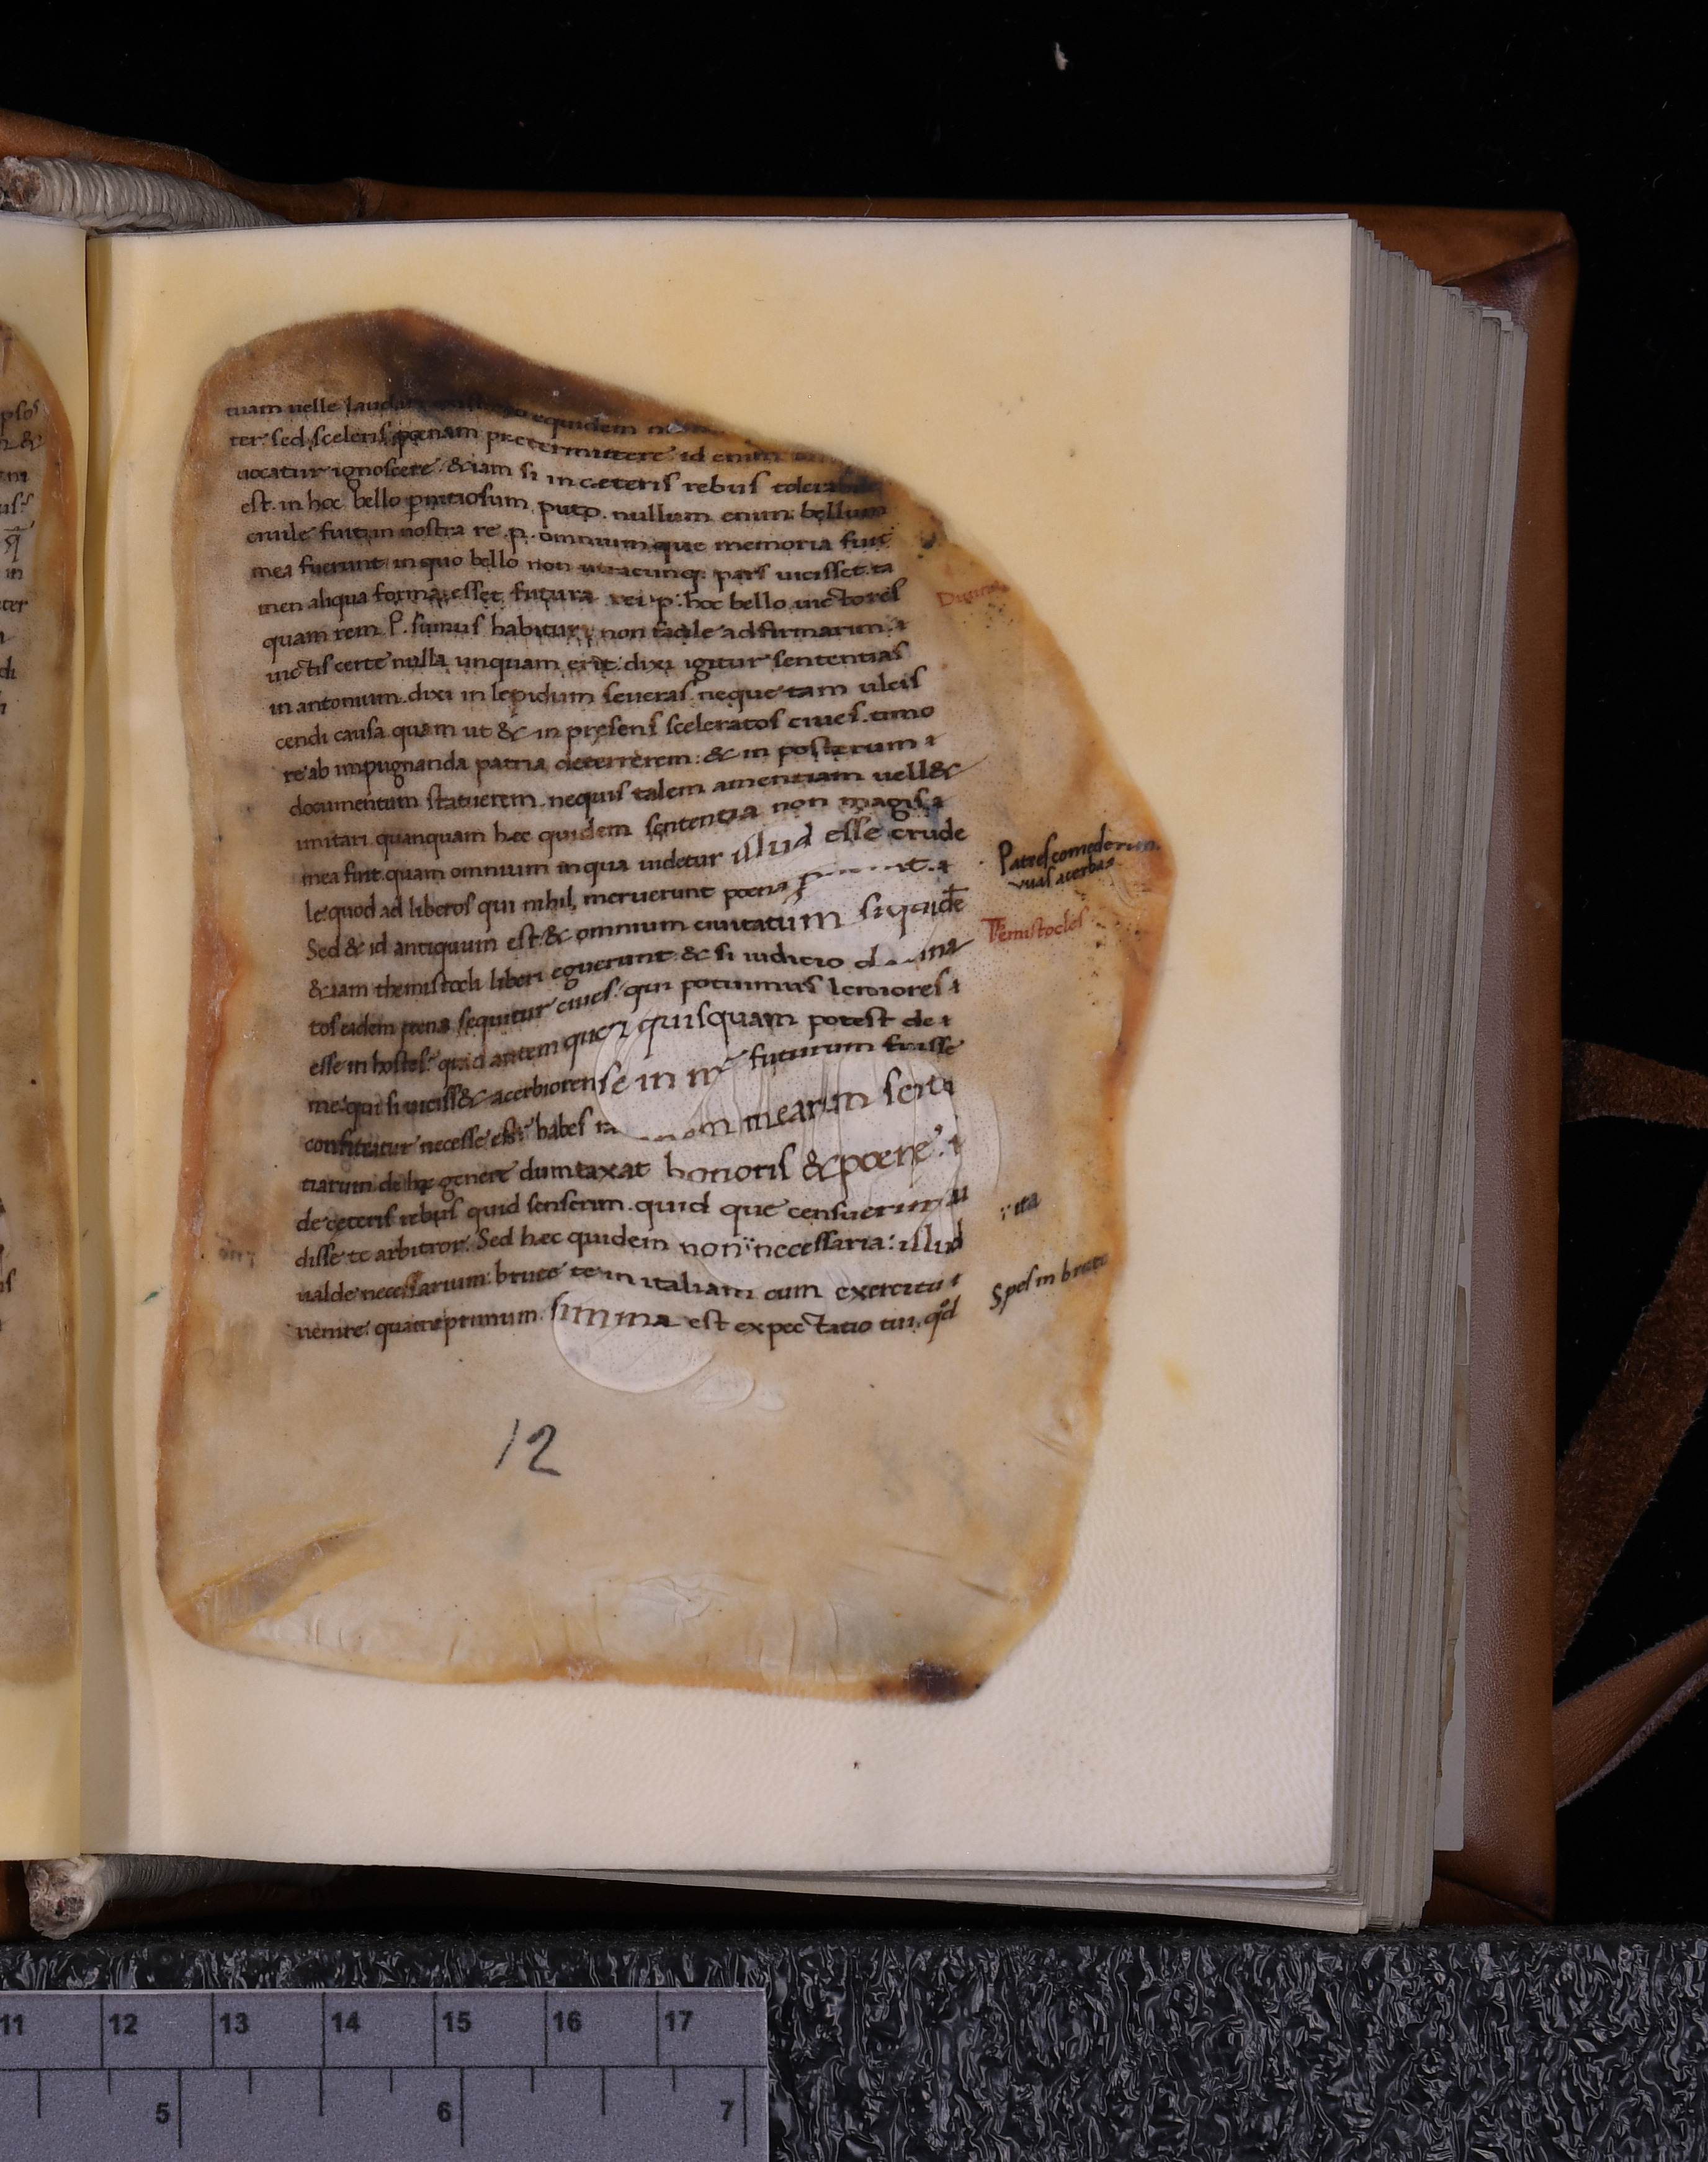 tuam uelle laudari equidem
ter sed sceleris pœnam prętermittere id enim
uocatur ignoscere &iam si in cęteris rebus tolerabile
est. in hoc bello pnitiosum puto. nullum enim bellum
ciuile fuit in nostra re .p. omnium que memoria fuit
mea fuerunt in quo bello non utracunq; pars uicisset ta
men aliqua forma esset futura rei .p. hoc bello uictores
quam rem .P. simus habituri non facile adfirmarim
uictis certe nulla unquam erit dixi igitur sententias
in antonium. dixi in lepidum seueras. neque tam ulcis
cendi causa quam ut & in pręsens sceleratos ciues timo
re ab impugnanda patria deterrerem: & in posterum
documentum statuerem. nequis talem amentiam uell&
imitari quanquam hæc quidem sententia non magis
mea fuit. quam omnium in qua uidetur illud esse crude
le. quod ad liberos qui nihil meruerunt poena
Sed & id antiquum est. & omnium ciuitatum siquidē
&iam themistocli liberi eguerunt & si iudicio
tos eadem pœna sequitur ciues. qui potuimus leniores
esse in hostes? quid autem queri quisquam potest de
me. qui si uiciss& acerbiorem se in me futurum fuisse
confiteatur necesse est? habes mearum sente
tiarum de hoc genere dumtaxat honoris & poenę.
de cęteris rebus quid senserim. quid que censuerim au
disse te arbitror. Sed hæc quidem non necessaria: illud
ualde necessarium: brute te in italiam cum exercitu
uenire. quamprimum. summa est expectatio tui. qđ
Patres comederun
vuas acerbas
Temistocles
: ita
Spes in bruto
12
11 12 13 14 15 16 17
5 6 7